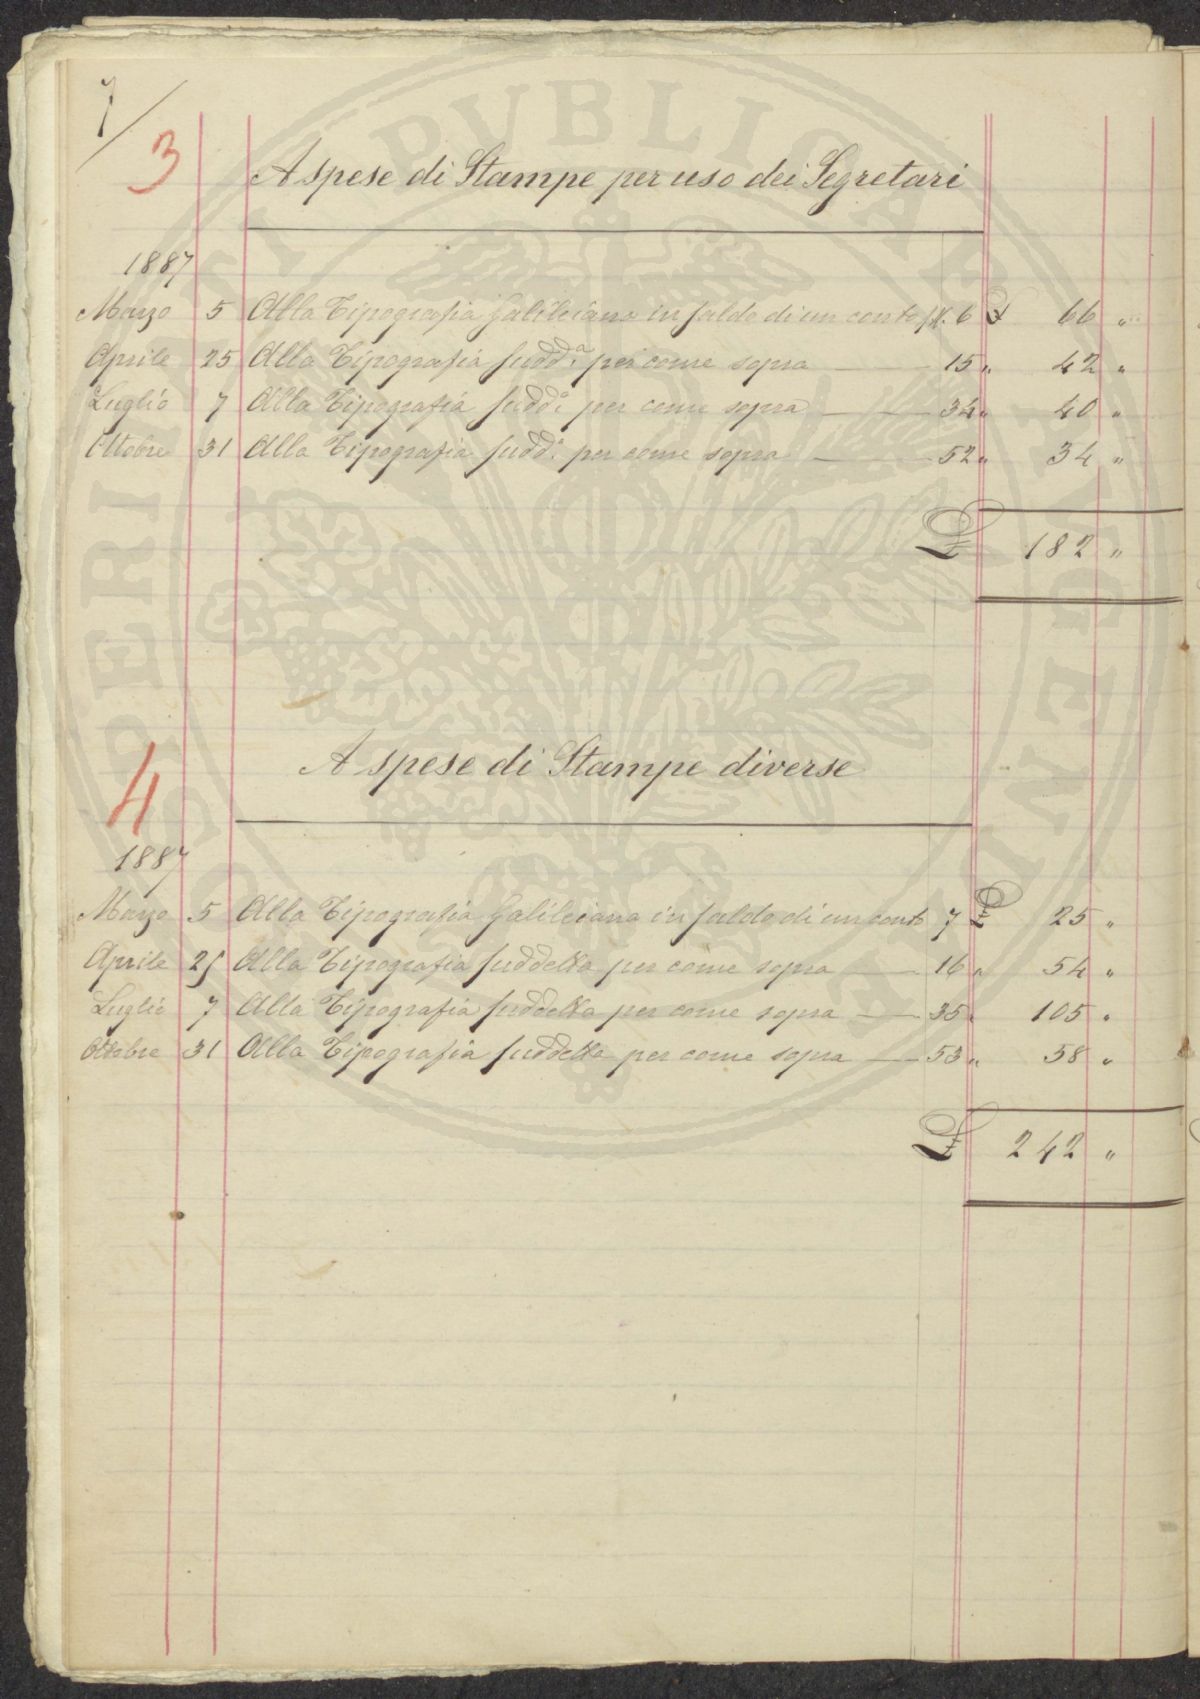 7/
3
A spese di Stampe per uso dei Segretari
1887
Marzo 5 Alla Tipografia Galileiana in saldo di un conto N. 6 £ 66 "
Aprile 25 Alla Tipografia sudd.a per come sopra 15 " 42 "
Luglio 7 Alla Tipografia sudd.a per come sopra 34 " 40 "
Ottobre 31 Alla Tipografia sudd.a per come sopra 52 " 34 "
£ 182 "
4
A spese di Stampe diverse
1887
Marzo 5 Alla Tipografia Galileiana in saldo di un conto 7 £ 25 "
Aprile 25 Alla Tipografia suddetta per come sopra 16 " 54 "
Luglio 7 Alla Tipografia suddetta per come sopra 35 " 105 "
Ottobre 31 Alla Tipografia suddetta per come sopra 53 " 58 "
£ 242 "